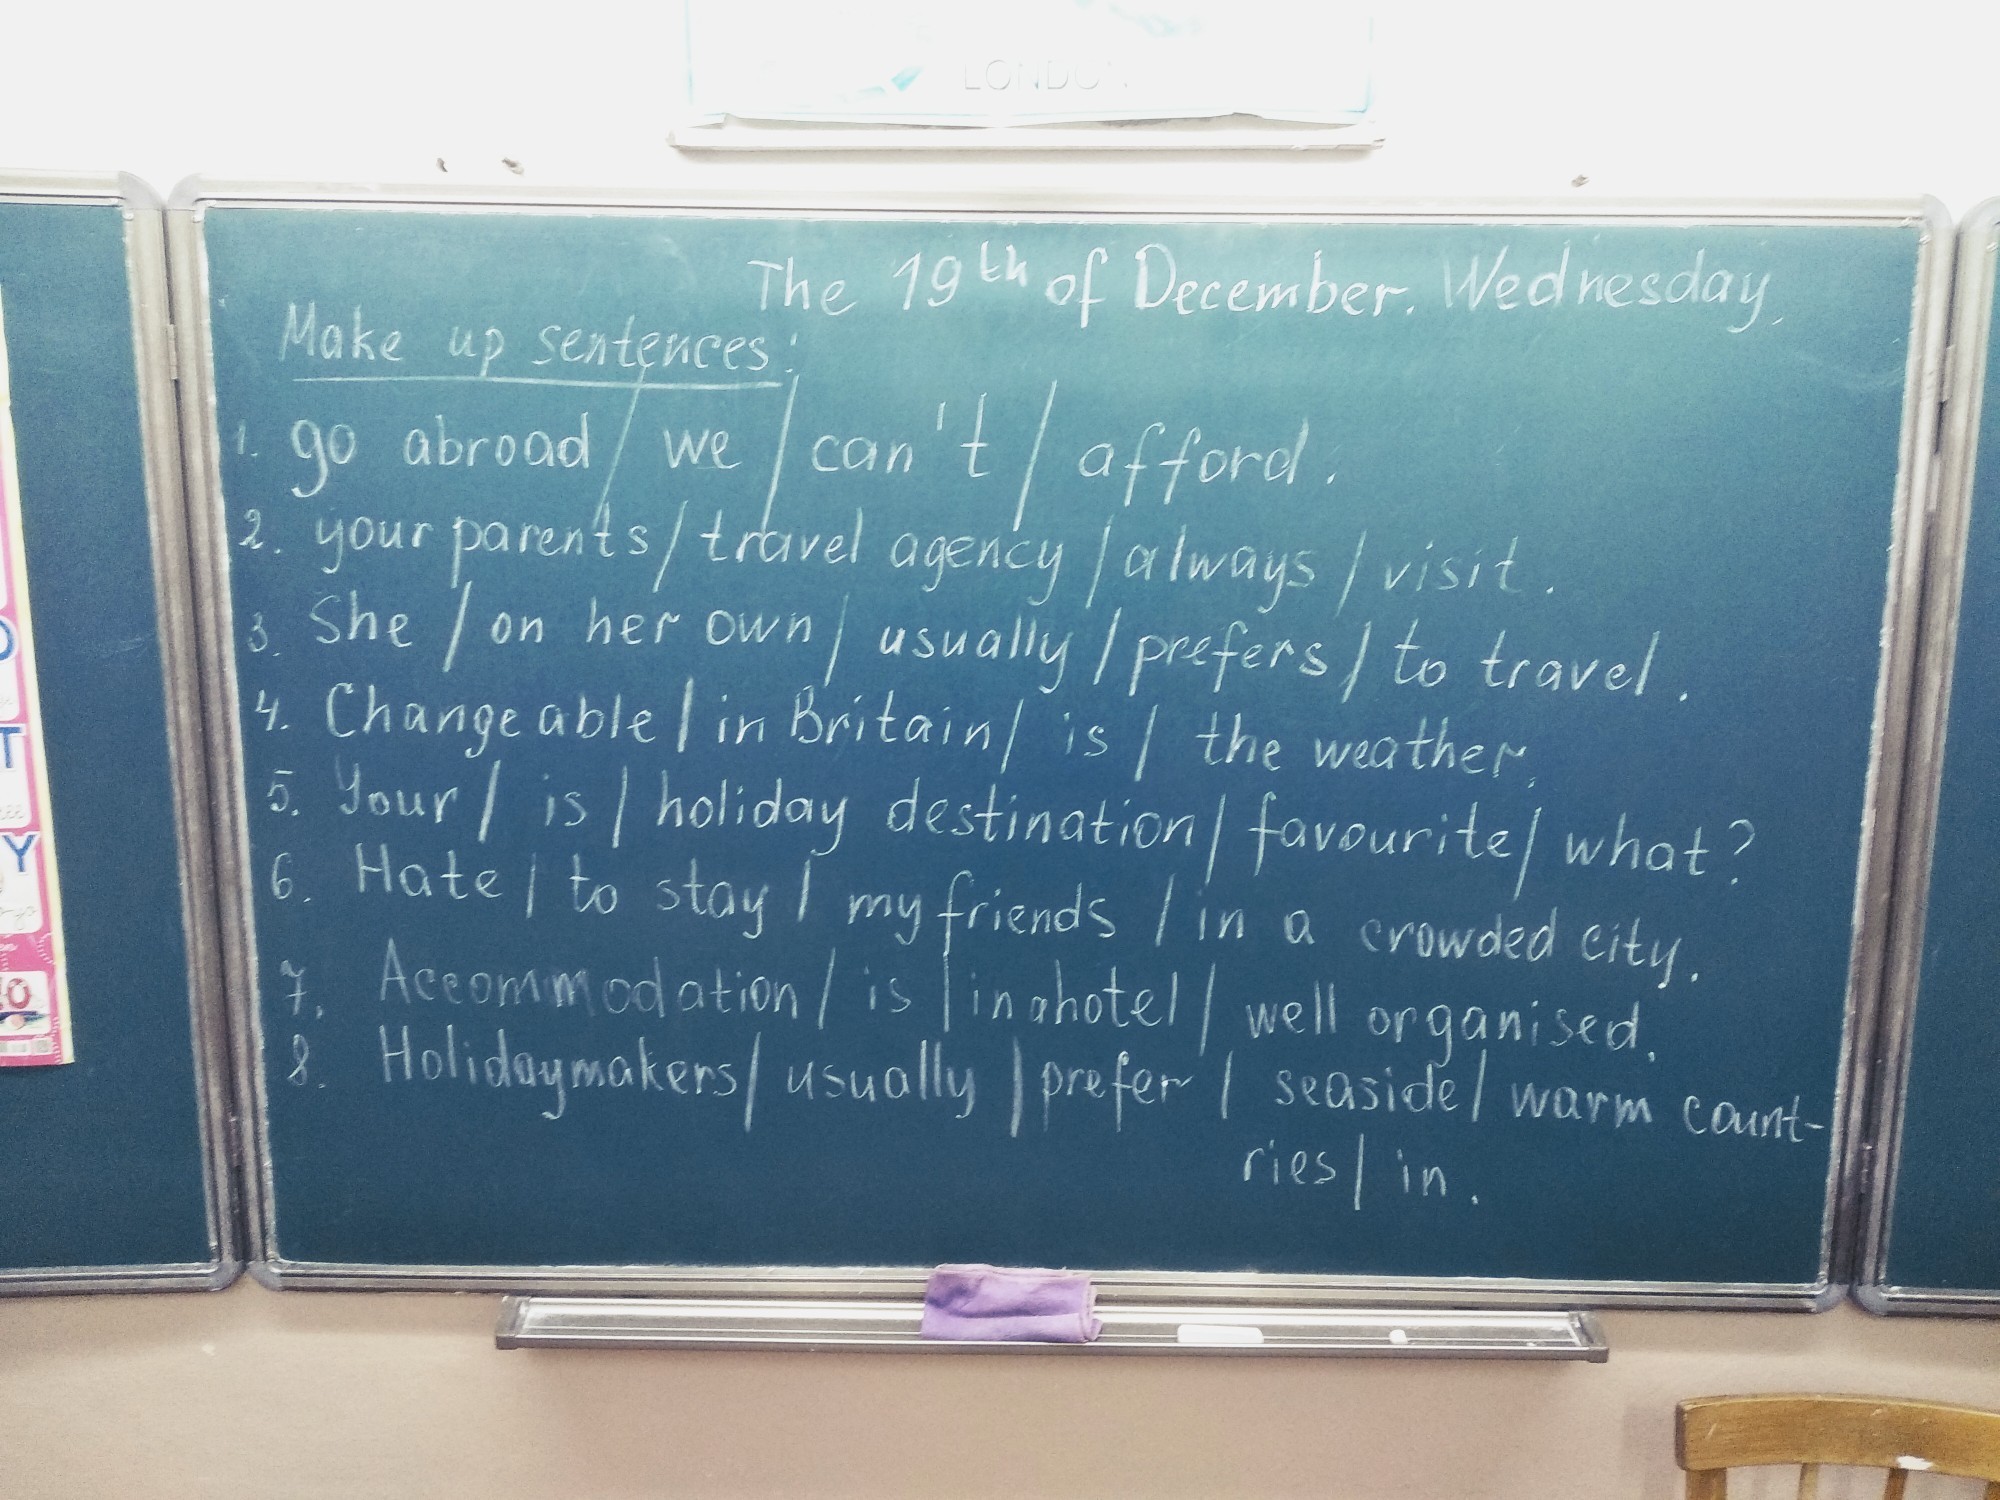 LONDON
The 19th of December. Wednesday.
Make up sentences:
1. go abroad / we / can't / afford.
2. your parents / travel agency / always / visit.
3. She / on her own / usually / prefers / to travel.
4. Changeable / in Britain / is / the weather.
5. Your / is / holiday destination / favourite / what?
6. Hate / to stay / my friends / in a crowded city.
7. Accommodation / is / in a hotel / well organised.
8. Holidaymakers / usually / prefer / seaside / warm count-
ries / in.
T
Y